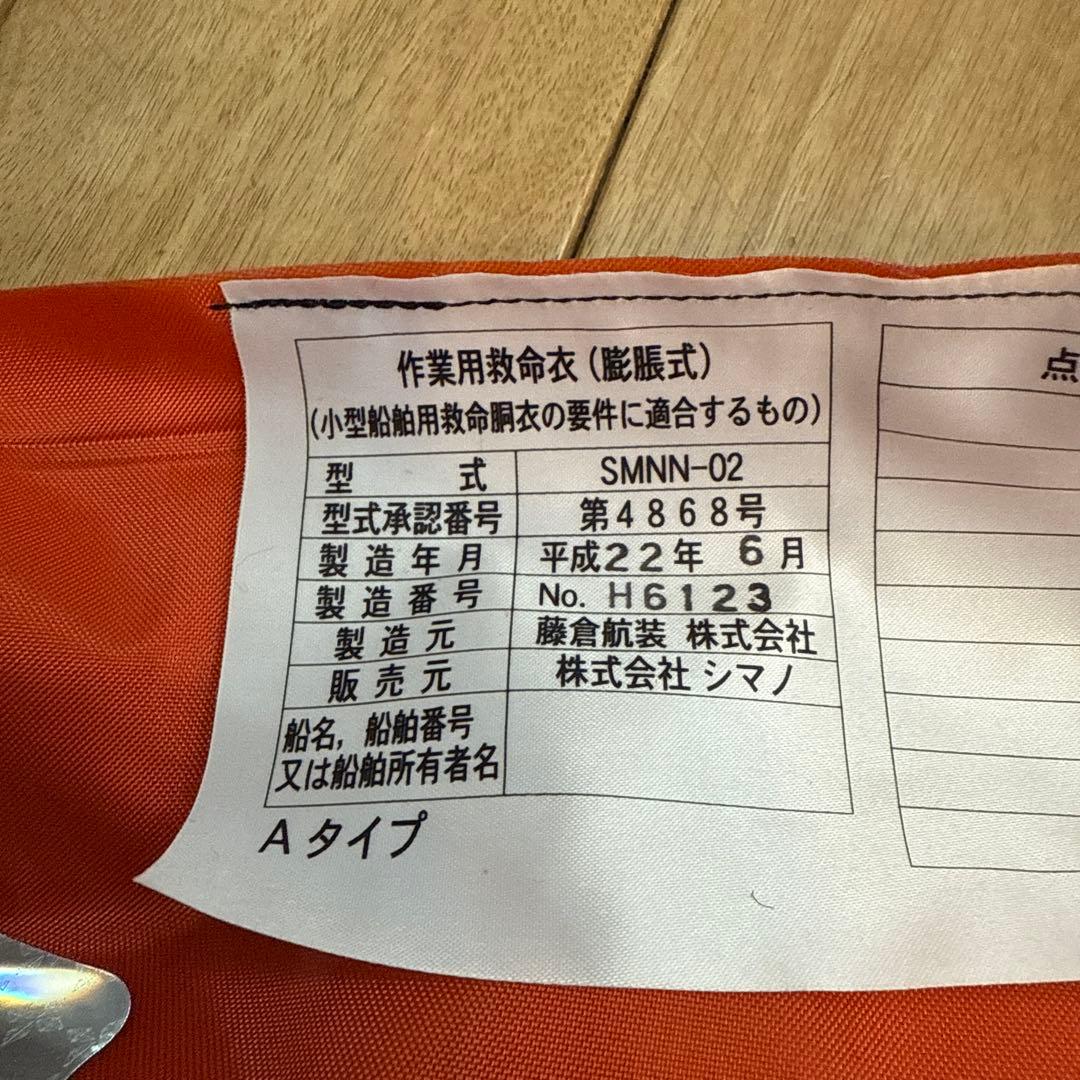 作業用救命衣(膨脹式)
(小型船舶用救命胴衣の要件に適合するもの)
型式 SMNN-02
型式承認番号 第4868号
製造年月 平成22年 6月
製造番号 No. H6123
製造元 藤倉航装 株式会社
販売元 株式会社 シマノ
船名, 船舶番号
又は船舶所有者名
Aタイプ
点